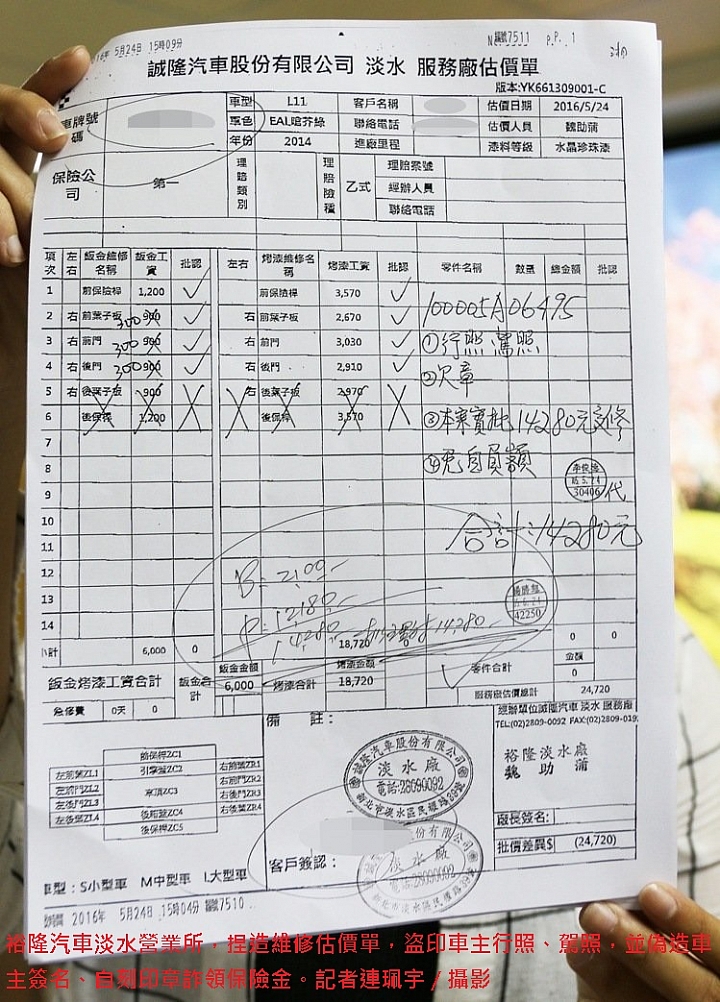 2016年 5月24日 15時09分
7511 P.P. 1
誠隆汽車股份有限公司 淡水 服務廠估價單
版本:YK661309001-C
車牌號碼 車型 L11 客戶名稱 估價日期 2016/5/24
車色 EAL哈芥綠 聯絡電話 估價人員 魏助蒲
年份 2014 進廠里程 漆料等級 水晶珍珠漆
保險公司 第一 理賠類別 理賠險種 乙式 理賠案號
經辦人員
聯絡電話
項次 左右 鈑金維修名稱 鈑金工資 批認 左右 烤漆維修名稱 烤漆工資 批認 零件名稱 數量 總金額 批認
1 前保險桿 1,200 前保險桿 3,570
2 右 前葉子板 300 900 右 前葉子板 2,670 100005A06495
3 右 前門 300 900 右 前門 3,030 ①行照 駕照
4 右 後門 300 900 右 後門 2,910 ②欠章
5 右 後葉子板 900 右 後葉子板 2,970
6 後保桿 1,200 後保桿 3,570 ③本案實批14280元交修
7
8 ④免自負額
9 30406 代
10
11 合計:14280元
12 B: 2,100
13 P: 12,180 42250
14 14,280
小計 6,000 0 18,720 0 0
鈑金烤漆工資合計 鈑金合計 鈑金金額 6,000 烤漆合計 烤漆金額 18,720 零件合計 金額 0
服務廠估價總計 24,720
急修費 0天 0
備 註:
經辦單位誠隆汽車 淡水 服務廠
TEL:(02)2809-0092 FAX:(02)2809-019
前保桿ZC1
左前葉ZL1 引擎蓋ZC2 右前葉ZR1
左前門ZL2 右前門ZR2
左後門ZL3 車頂ZC3 右後門ZR3
左後葉ZL4 後箱蓋ZC4 右後葉ZR4
後保桿ZC5
誠隆汽車股份有限公司
淡水廠
電話:28090092
新北市淡水區民權路
裕隆淡水廠
魏 助 蒲
廠長簽名:
批價差異$ (24,720)
客戶簽認:
份有限公司
淡水廠
28090092
新北市淡水區民權路
車型:S小型車 M中型車 L大型車
2016年 5月24日 15時04分 7510
裕隆汽車淡水營業所，捏造維修估價單，盜印車主行照、駕照，並偽造車
主簽名、自刻印章詐領保險金。記者連珮宇／攝影